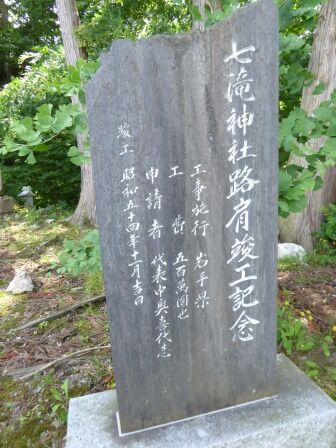 七滝神社路肩竣工記念
工事施行 岩手県
工費 五百萬圓也
申請者 代表中奥喜代志
竣工 昭和五十四年十一月吉日